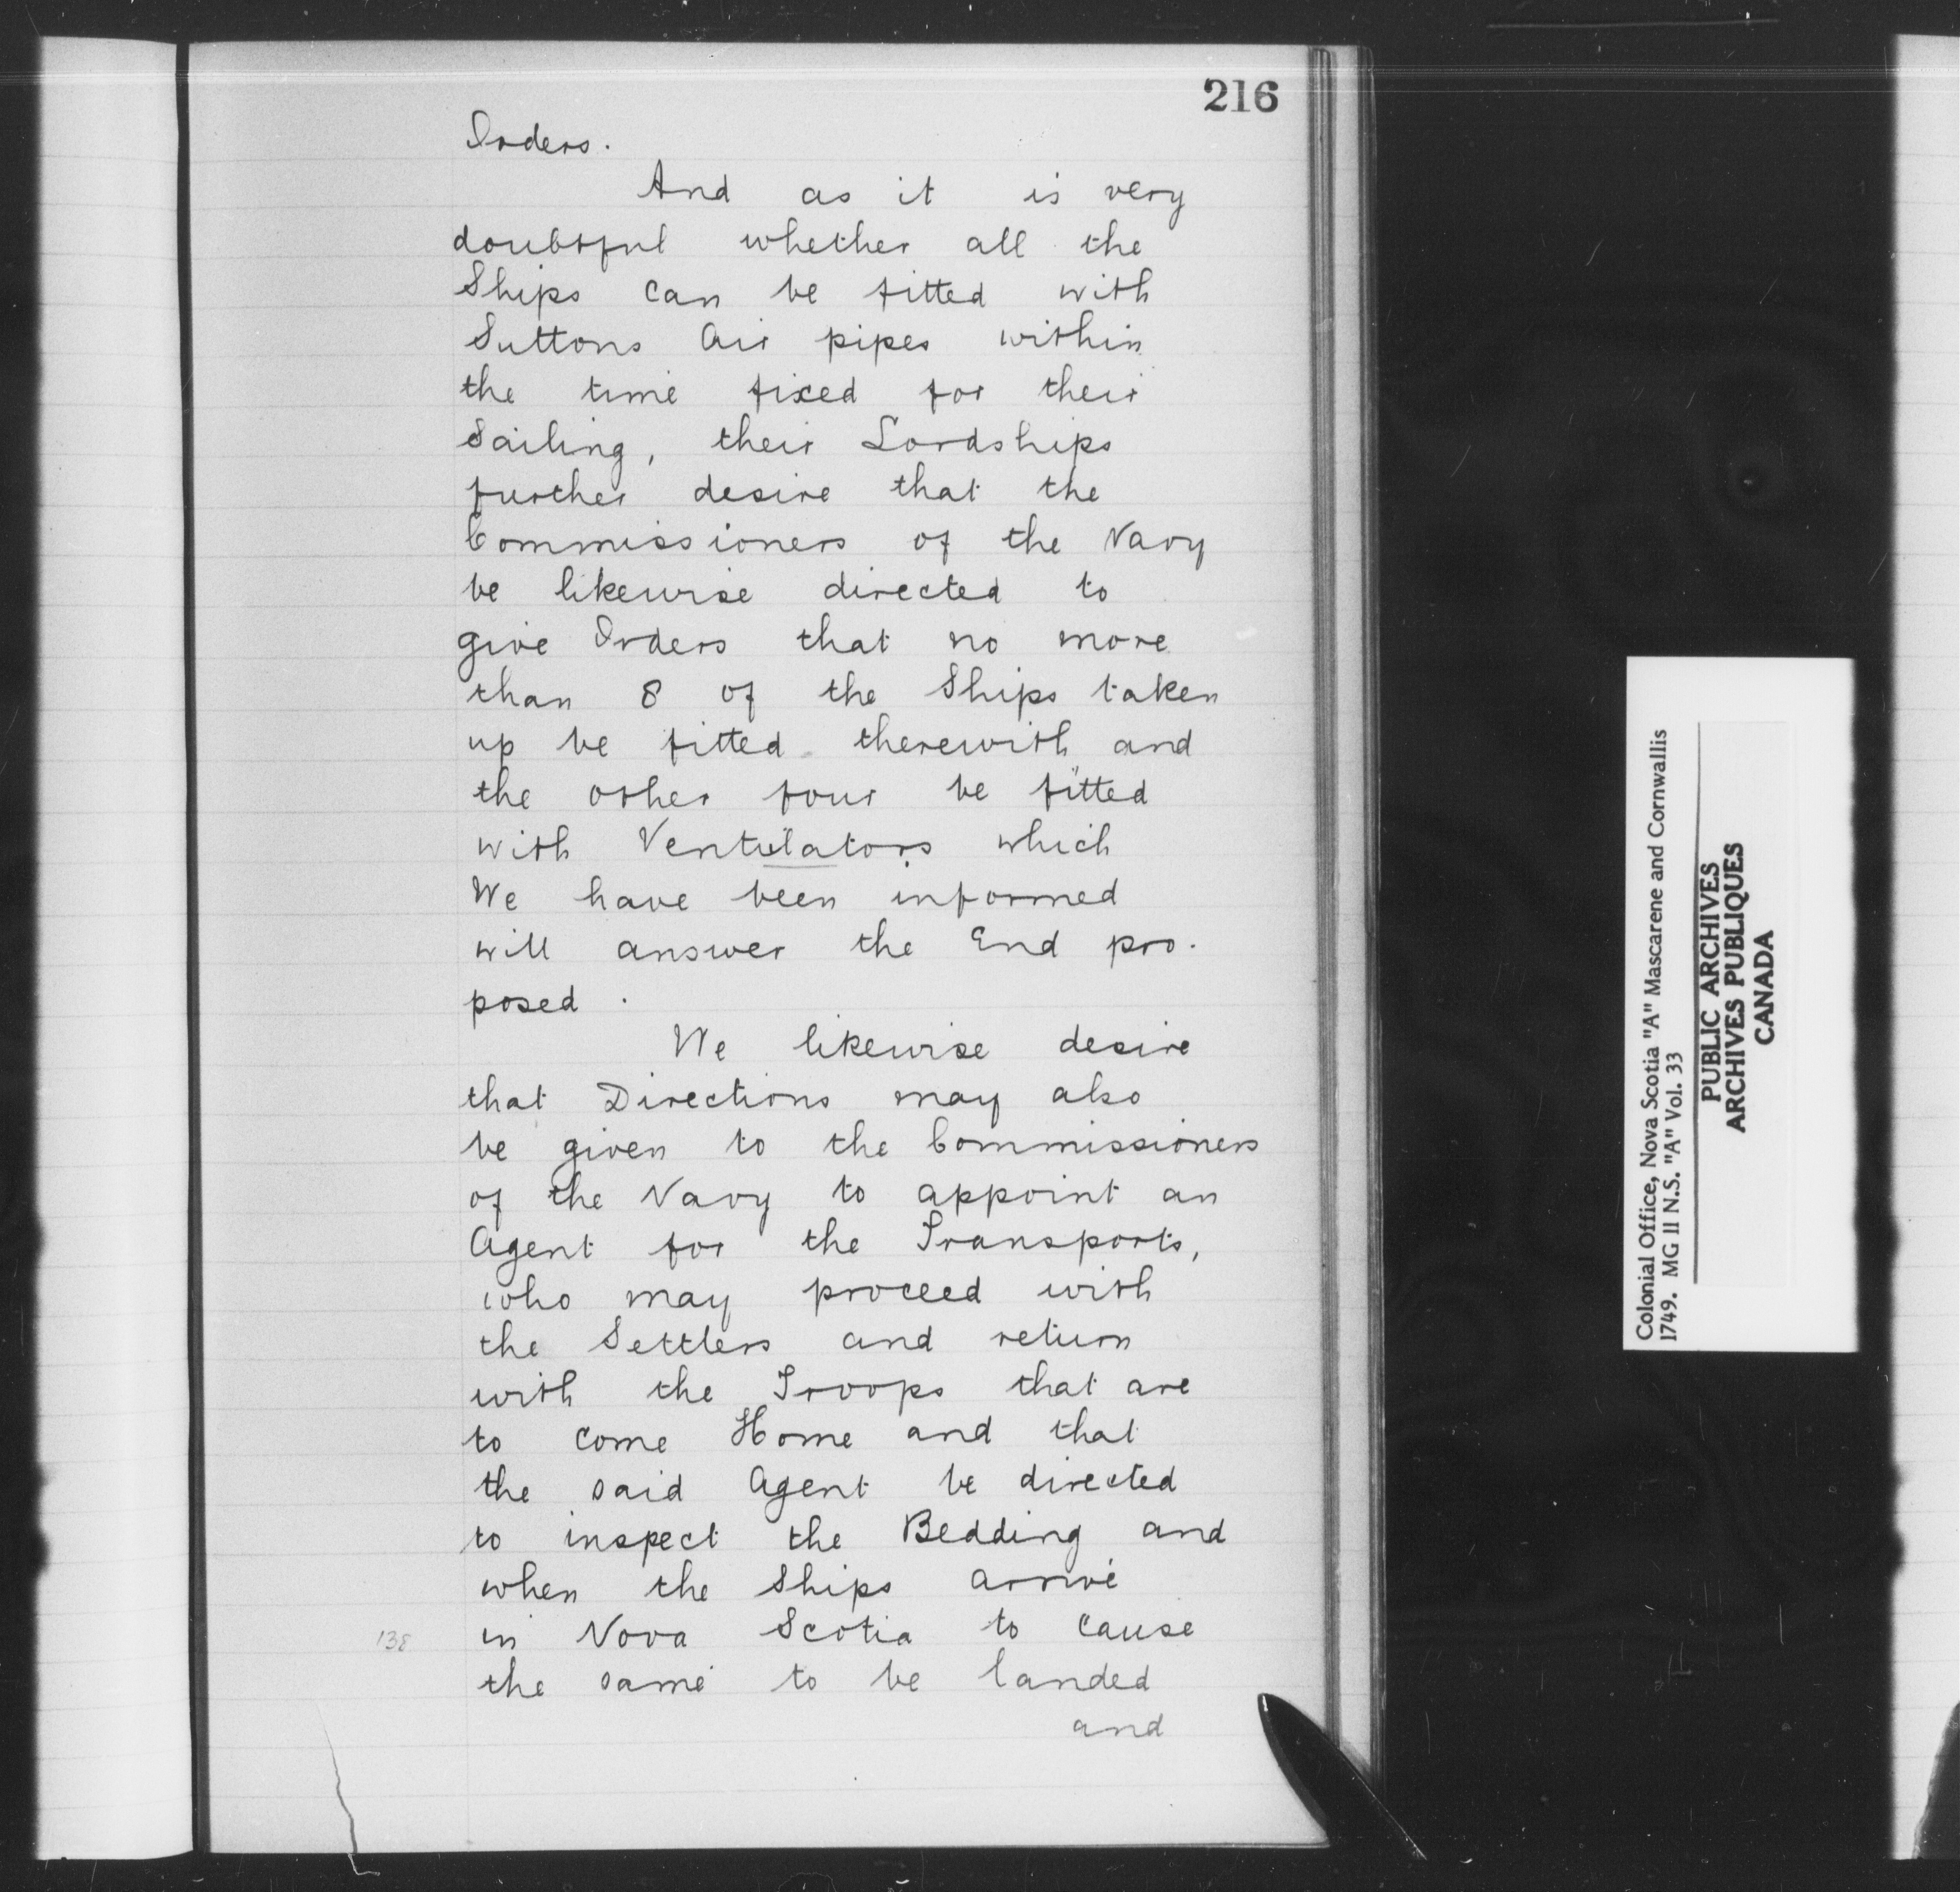 216
Orders.
And as it is very
doubtful whether all the
Ships can be fitted with
Suttons Air pipes within
the time fixed for their
Sailing, their Lordships
further desire that the
Commissioners of the Navy
be likewise directed to
give Orders that no more
than 8 of the Ships taken
up be fitted therewith and
the other four be fitted
with Ventulators which
We have been informed
will answer the End pro-
posed.
We likewise desire
that Directions may also
be given to the Commissioners
of the Navy to appoint an
Agent for the Transports,
who may proceed with
the Settlers and return
with the Troops that are
to come Home and that
the said Agent be directed
to inspect the Bedding and
when the Ships arrive
138
in Nova Scotia to cause
the same to be landed
and
Colonial Office, Nova Scotia "A" Mascarene and Cornwallis
1749. MG 11 N.S. "A" Vol. 33
PUBLIC ARCHIVES
ARCHIVES PUBLIQUES
CANADA